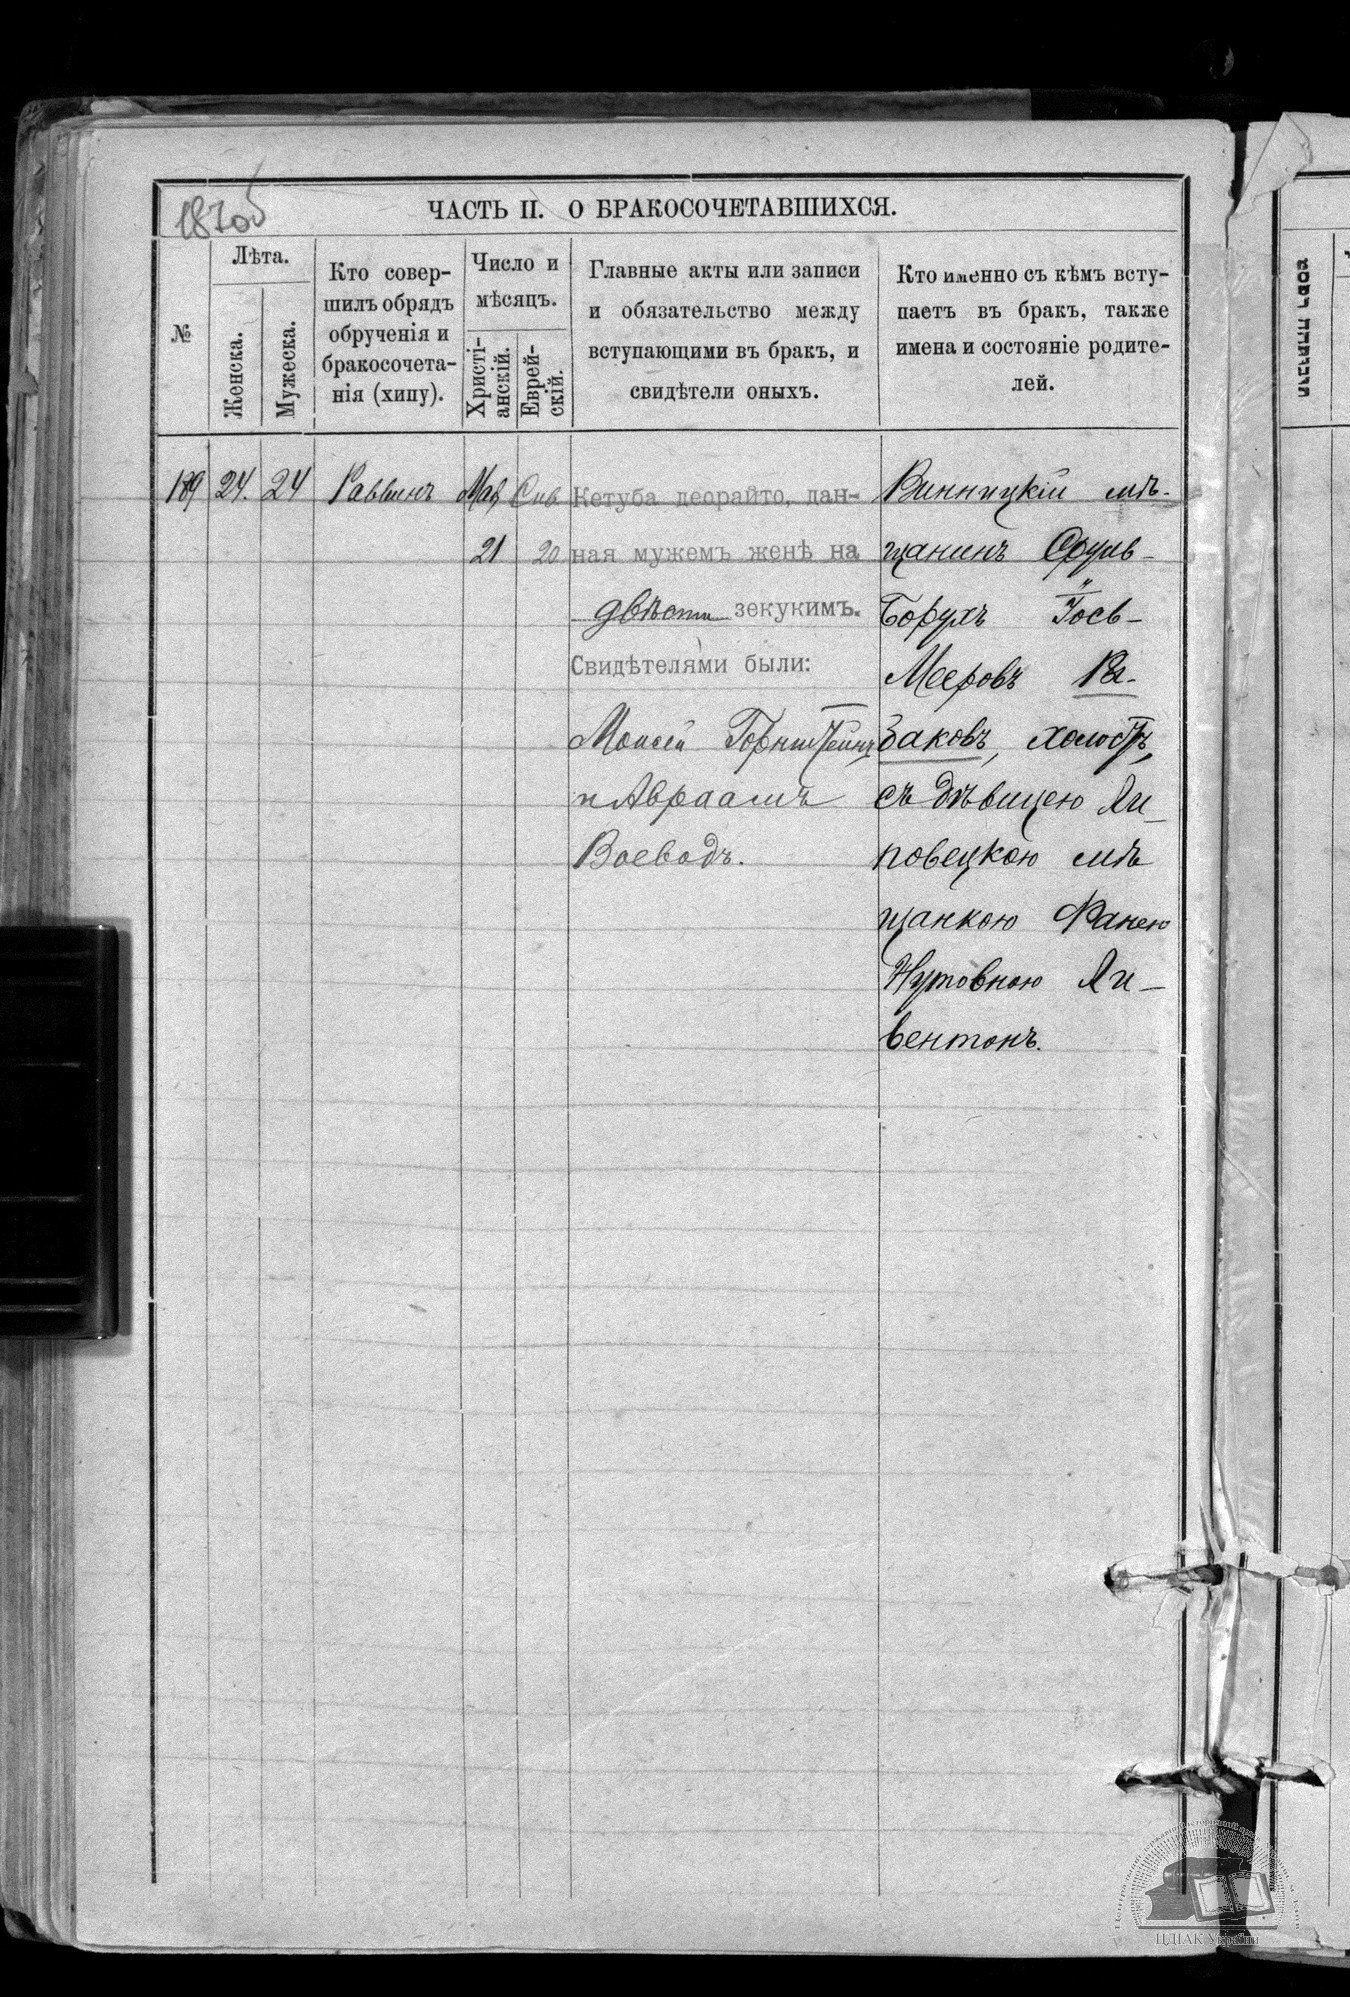 187об
ЧАСТЬ II. О БРАКОСОЧЕТАВШИХСЯ.
№
Лѣта.
Женска.
Мужеска.
Кто совер-
шилъ обрядъ
обрученія и
бракосочета-
нія (хипу).
Число и
мѣсяцъ.
Христі-
анскій.
Еврей-
скій.
Главные акты или записи
и обязательство между
вступающими въ бракъ, и
свидѣтели оныхъ.
Кто именно съ кѣмъ всту-
паетъ въ бракъ, также
имена и состояніе родите-
лей.
189
24.
24
Раввинъ
Мая
21
Сив.
20
Кетуба деорайто, дан-
ная мужемъ женѣ на
двѣсти зекукимъ.
Свидѣтелями были:
Моисей Горнштейнъ
и Авраамъ
Воеводъ.
Винницкій мѣ-
щанинъ Сруль-
Борухъ Іось-
Мееровъ Ка-
заковъ, холостъ,
съ дѣвицею Ли-
повецкою мѣ
щанкою Фанею
Нутовною Ли-
вентонъ.
ЦДІАК України